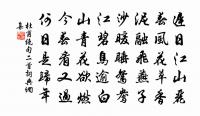 遲日江山麗
春風花草香
泥融飛燕子
沙暖睡鴛鴦
江碧鳥逾白
山青花欲燃
今春看又過
何日是歸年
杜甫絕句二首